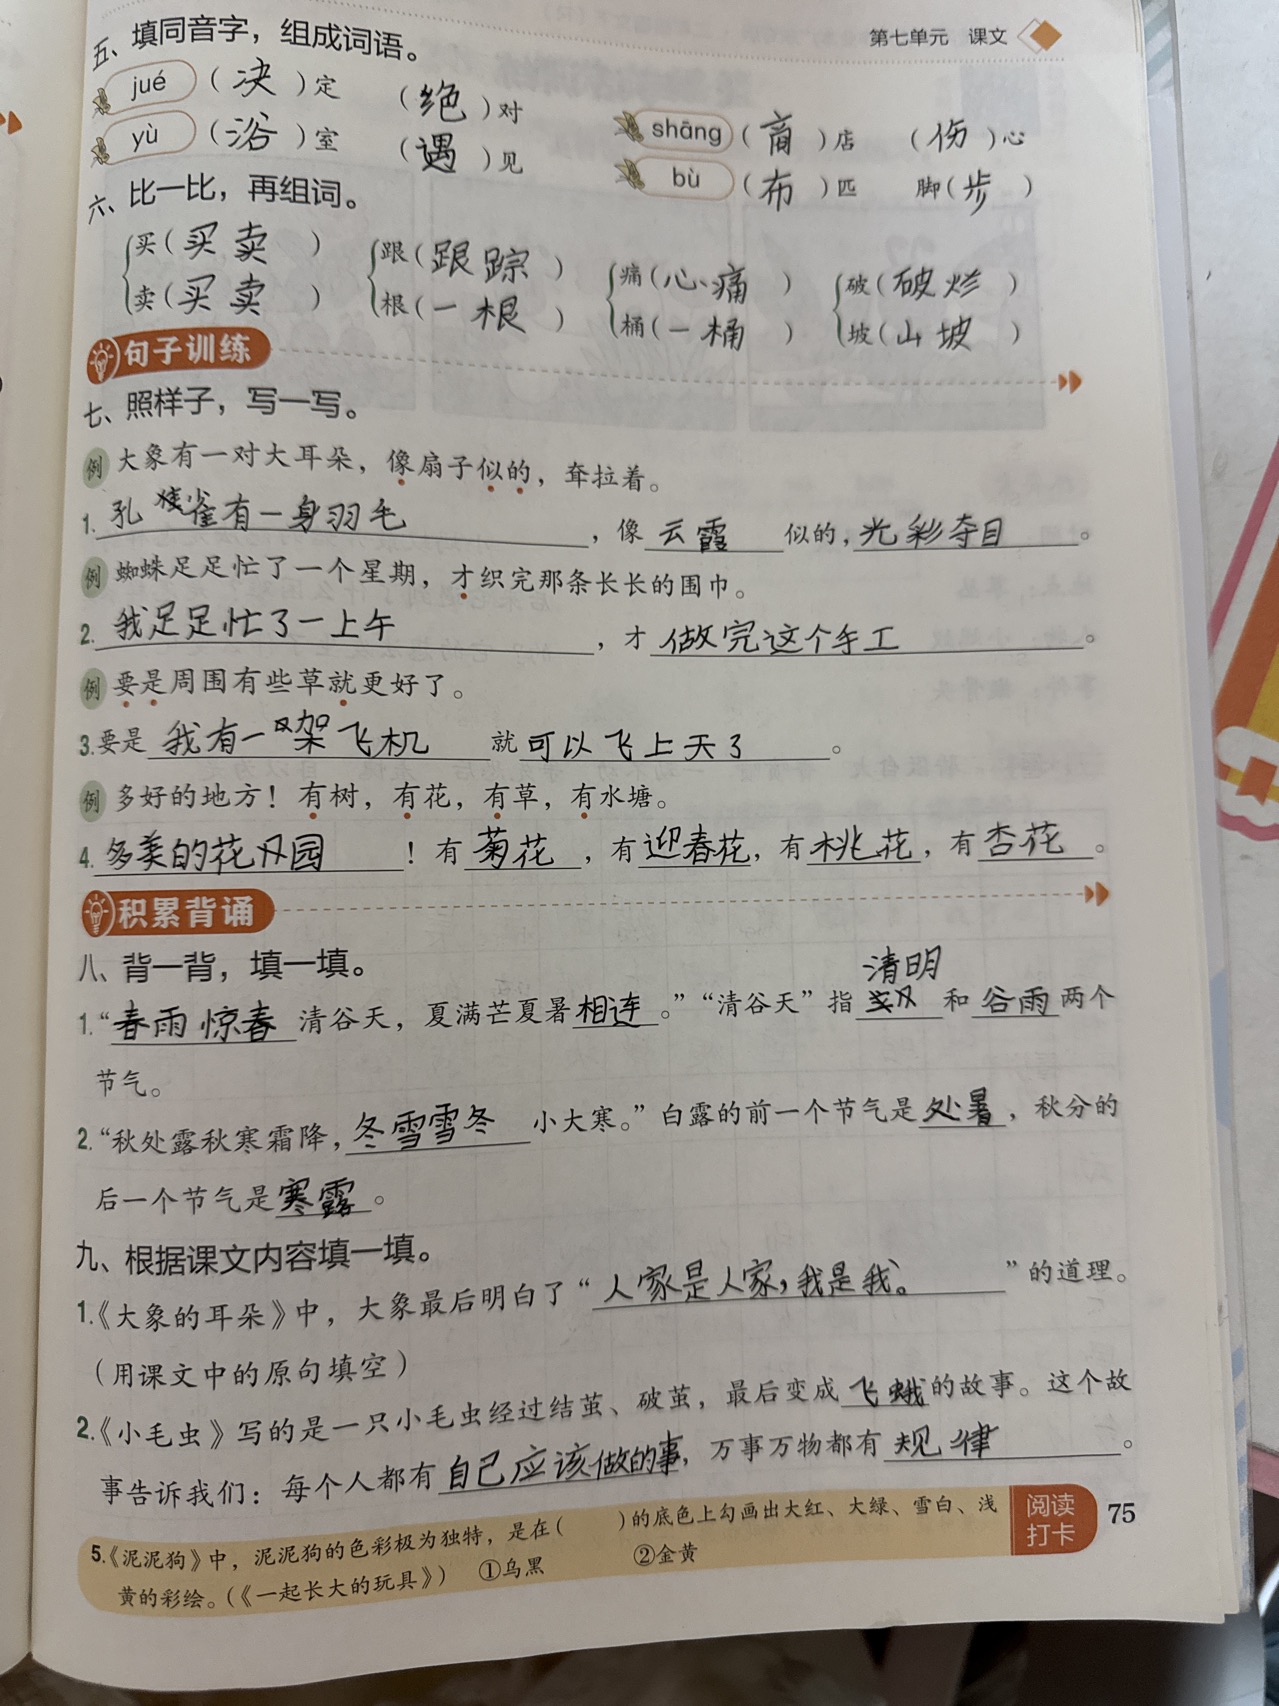 第七单元 课文
五、填同音字，组成词语。
jué （决）定 （绝）对 shāng （商）店 （伤）心
yù （浴）室 （遇）见 bù （布）匹 脚（步）
六、比一比，再组词。
买（买卖） 跟（跟踪） 痛（心痛） 破（破烂）
卖（买卖） 根（一根） 桶（一桶） 坡（山坡）
句子训练
七、照样子，写一写。
例 大象有一对大耳朵，像扇子似的，耷拉着。
1. 孔雀有一身羽毛，像云霞似的，光彩夺目。
例 蜘蛛足足忙了一个星期，才织完那条长长的围巾。
2. 我足足忙了一上午，才做完这个手工。
例 要是周围有些草就更好了。
3. 要是我有一架飞机就可以飞上天了。
例 多好的地方！有树，有花，有草，有水塘。
4. 多美的花园！有菊花，有迎春花，有桃花，有杏花。
积累背诵
八、背一背，填一填。
清明
1.“春雨惊春清谷天，夏满芒夏暑相连。”“清谷天”指 和谷雨两个
节气。
2.“秋处露秋寒霜降，冬雪雪冬小大寒。”白露的前一个节气是处暑，秋分的
后一个节气是寒露。
九、根据课文内容填一填。
1.《大象的耳朵》中，大象最后明白了“人家是人家，我是我。”的道理。
（用课文中的原句填空）
2.《小毛虫》写的是一只小毛虫经过结茧、破茧，最后变成飞蛾的故事。这个故
事告诉我们：每个人都有自己应该做的事，万事万物都有规律。
5.《泥泥狗》中，泥泥狗的色彩极为独特，是在（ ）的底色上勾画出大红、大绿、雪白、浅
黄的彩绘。（《一起长大的玩具》） ①乌黑 ②金黄
阅读
打卡
75